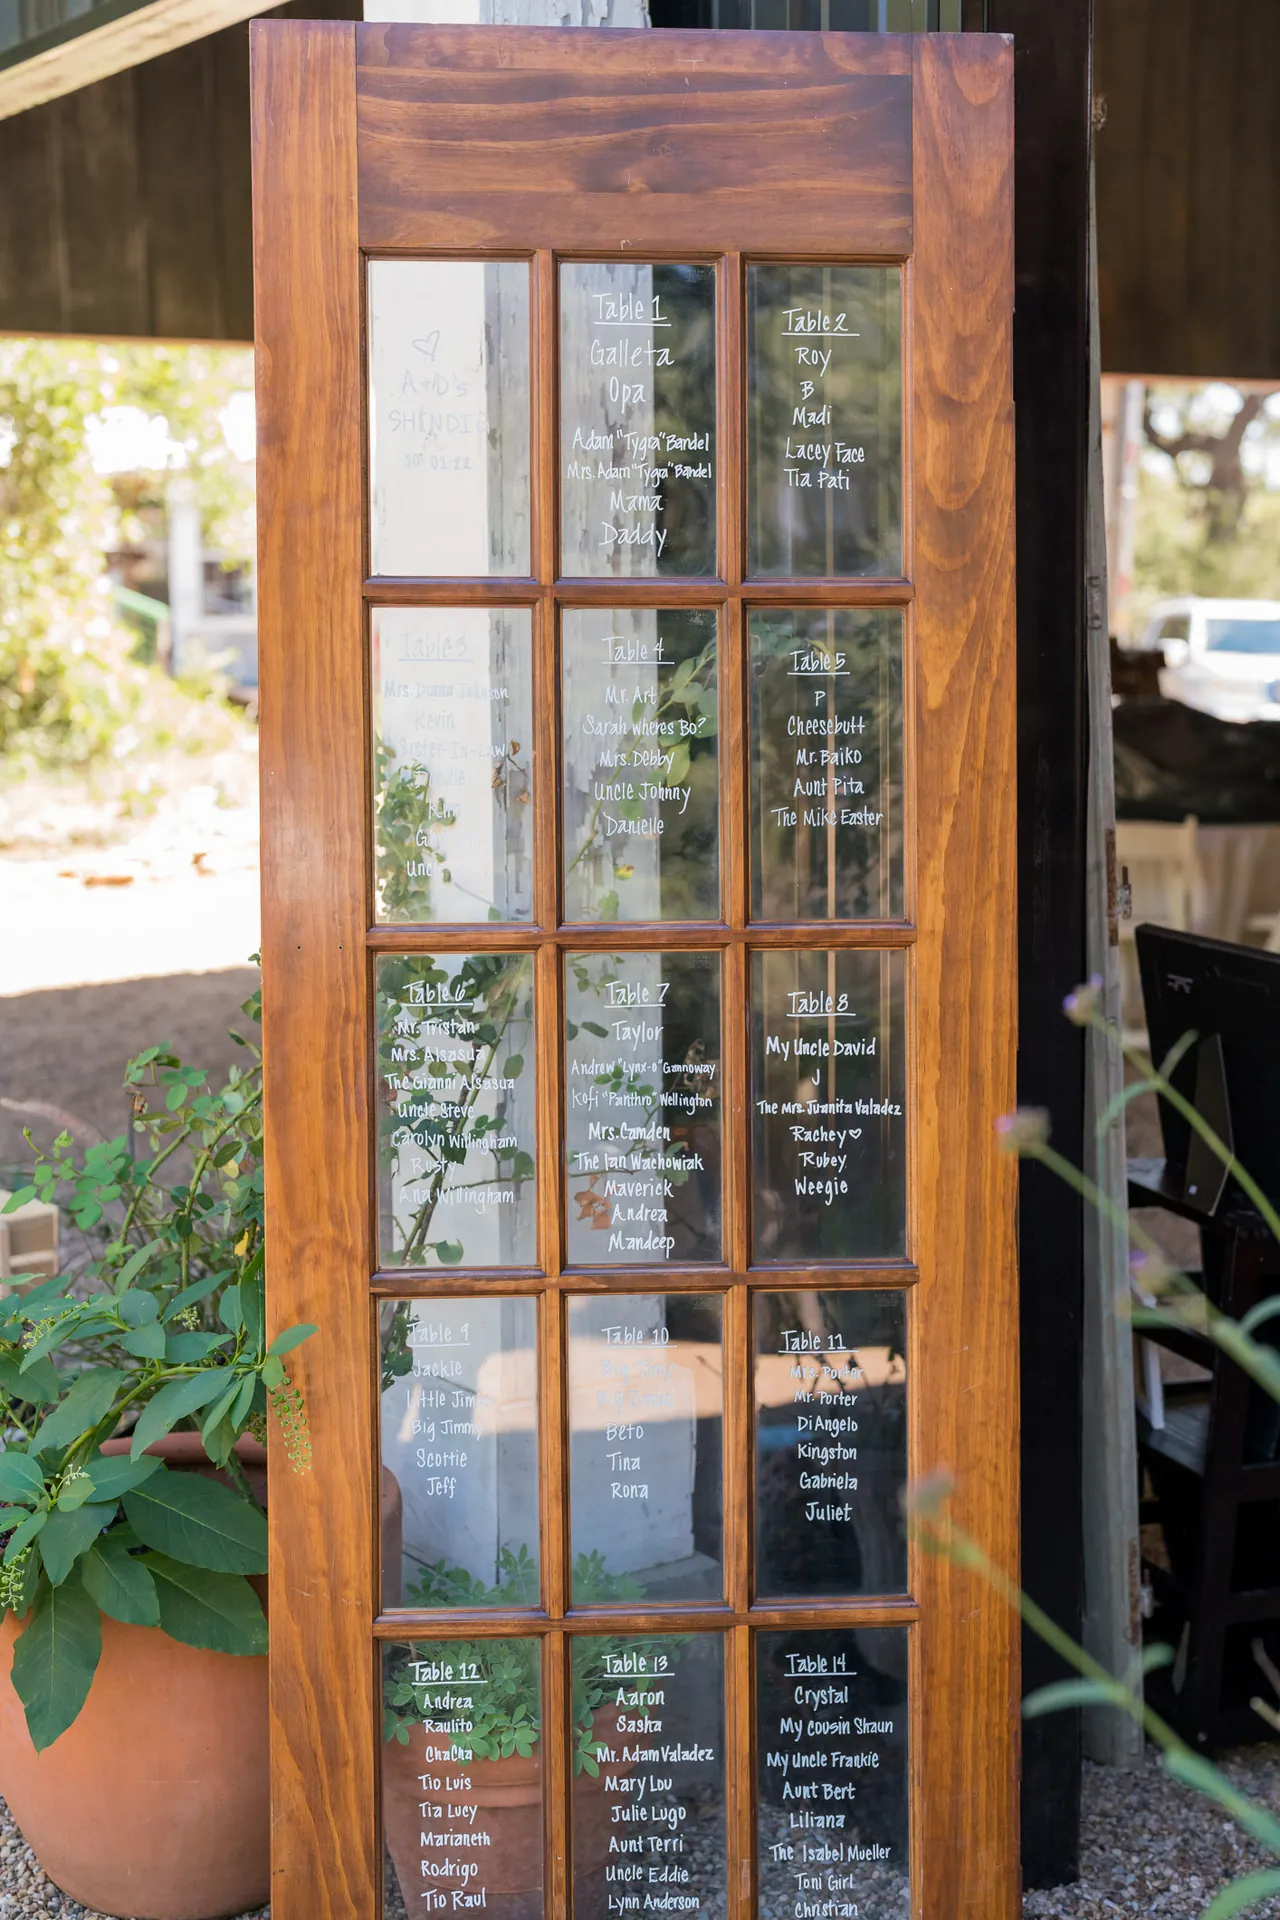 A+D's
SHINDIG
Table 1
Galleta
Opa
Adam "Tygra" Bandel
Mrs. Adam "Tygra" Bandel
Mama
Daddy
Table 2
Roy
B
Madi
Lacey Face
Tia Pati
Table 3
Mrs. Diana Johnson
Kevin
Sister-In-Law
Table 4
Mr. Art
Sarah wheres Bo?
Mrs. Debby
Uncle Johnny
Danielle
Table 5
P
Cheesebutt
Mr. Baiko
Aunt Pita
The Mike Easter
Table 6
Mr. Tristan
Mrs. Alsasua
The Gianni Alsasua
Uncle Steve
Carolyn Willingham
Rusty
Ana Willingham
Table 7
Taylor
Andrew "Lynx-o" Gannoway
Kofi "Panthro" Wellington
Mrs. Camden
The Ian Wachowiak
Maverick
Andrea
Mandeep
Table 8
My Uncle David
J
The Mrs. Juanita Valadez
Rachey♡
Rubey
Weegie
Table 9
Jackie
Little Jimmy
Big Jimmy
Scottie
Jeff
Table 10
Big Tony
Beto
Tina
Rona
Table 11
Mrs. Porter
Mr. Porter
DiAngelo
Kingston
Gabriela
Juliet
Table 12
Andrea
Raulito
ChaCha
Tio Luis
Tia Lucy
Marianeth
Rodrigo
Tio Raul
Table 13
Aaron
Sasha
Mr. Adam Valadez
Mary Lou
Julie Lugo
Aunt Terri
Uncle Eddie
Lynn Anderson
Table 14
Crystal
My cousin Shaun
My Uncle Frankie
Aunt Bert
Liliana
The Isabel Mueller
Toni Girl
Christian